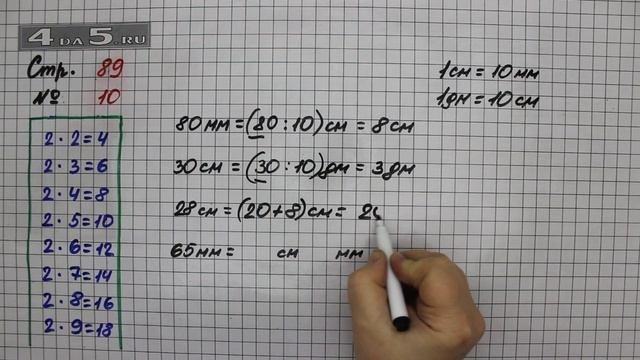 4 DA 5.RU
Стр. 89
№ 10
2 · 2 = 4
2 · 3 = 6
2 · 4 = 8
2 · 5 = 10
2 · 6 = 12
2 · 7 = 14
2 · 8 = 16
2 · 9 = 18
1см = 10 мм
1дм = 10 см
80 мм = (80 : 10) см = 8 см
30 см = (30 : 10) дм = 3 дм
28 см = (20 + 8) см = 2
65 мм = см мм